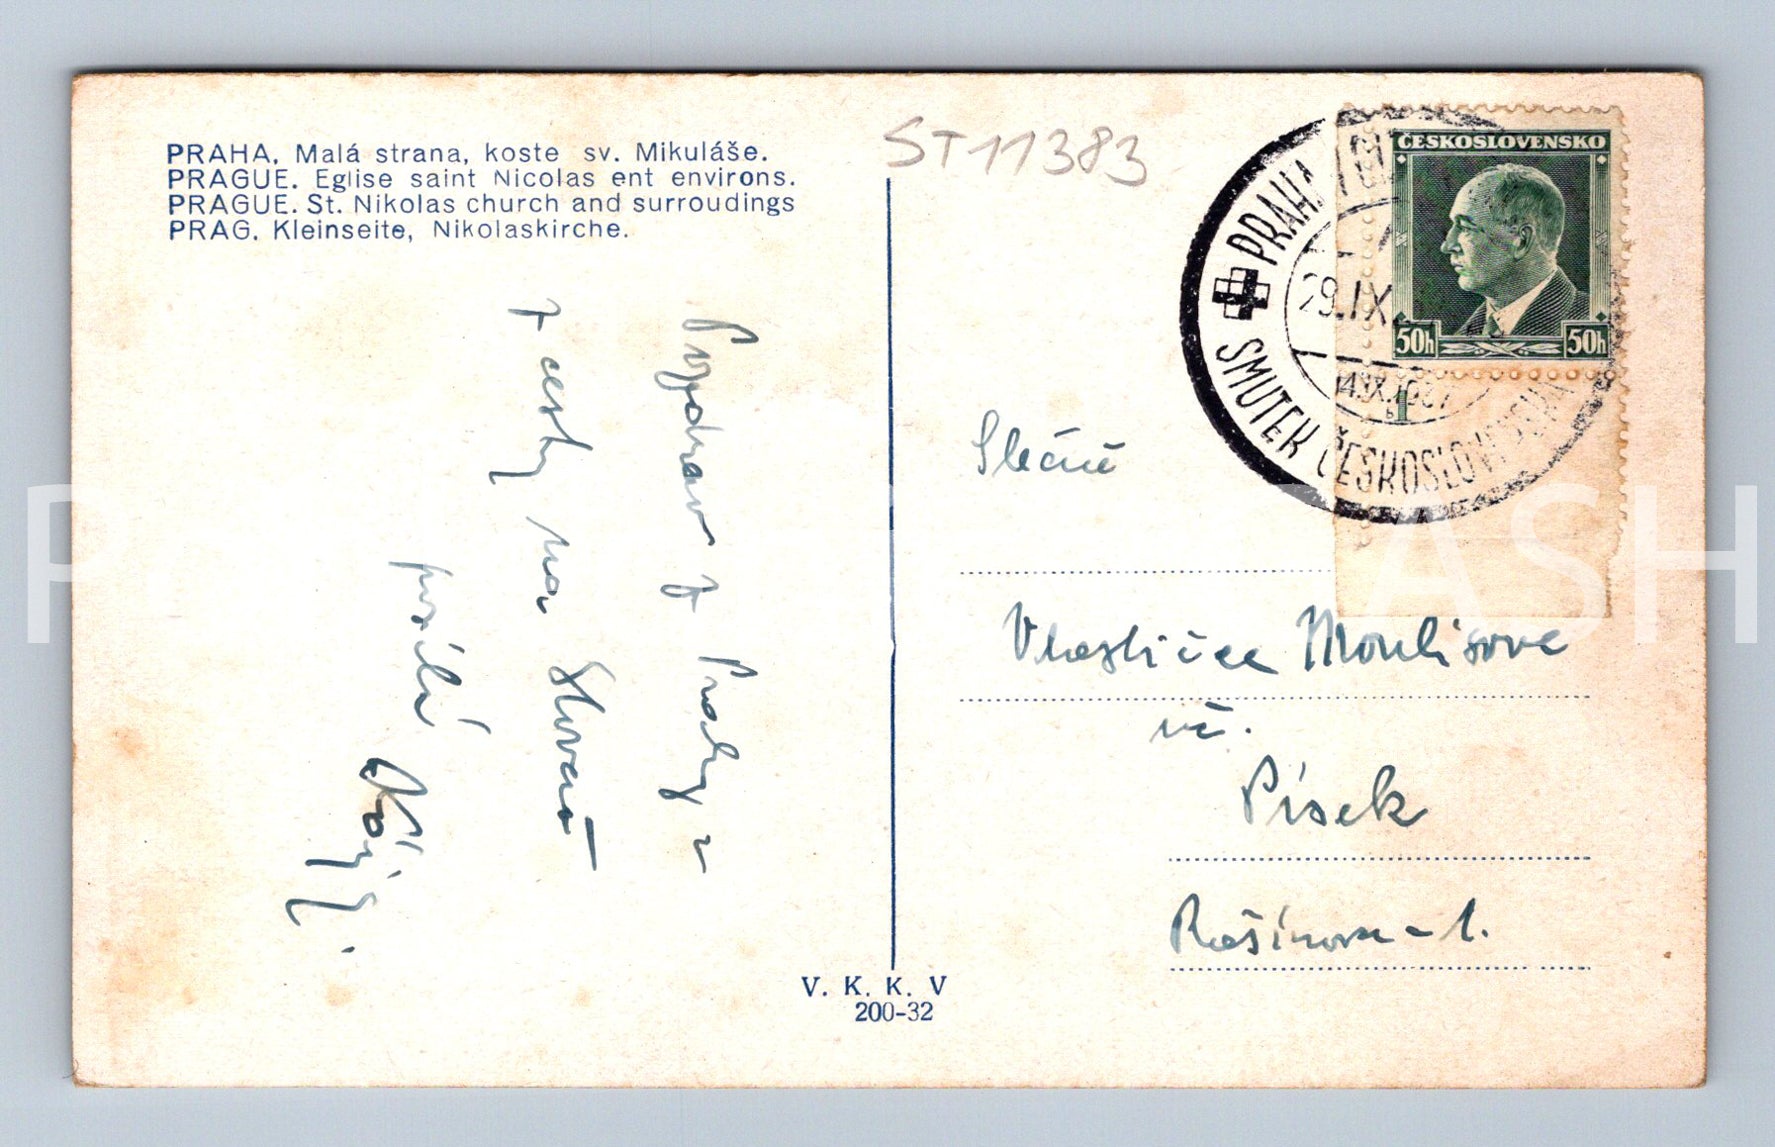 PRAHA. Malá strana, koste sv. Mikuláše.
PRAGUE. Eglise saint Nicolas ent environs.
PRAGUE. St. Nikolas church and surroudings
PRAG. Kleinseite, Nikolaskirche.
ST 11383
ČESKOSLOVENSKO
50h 50h
PRAHA
29.IX
14.IX.1937
SMUTEK ČESKOSLOVENSKA
Pozdrav z Prahy z
z cesty na Slovač
posílá
Slečně
Vlastičce Moulisové
uč.
Písek
Rašínova - 1.
V. K. K. V
200-32